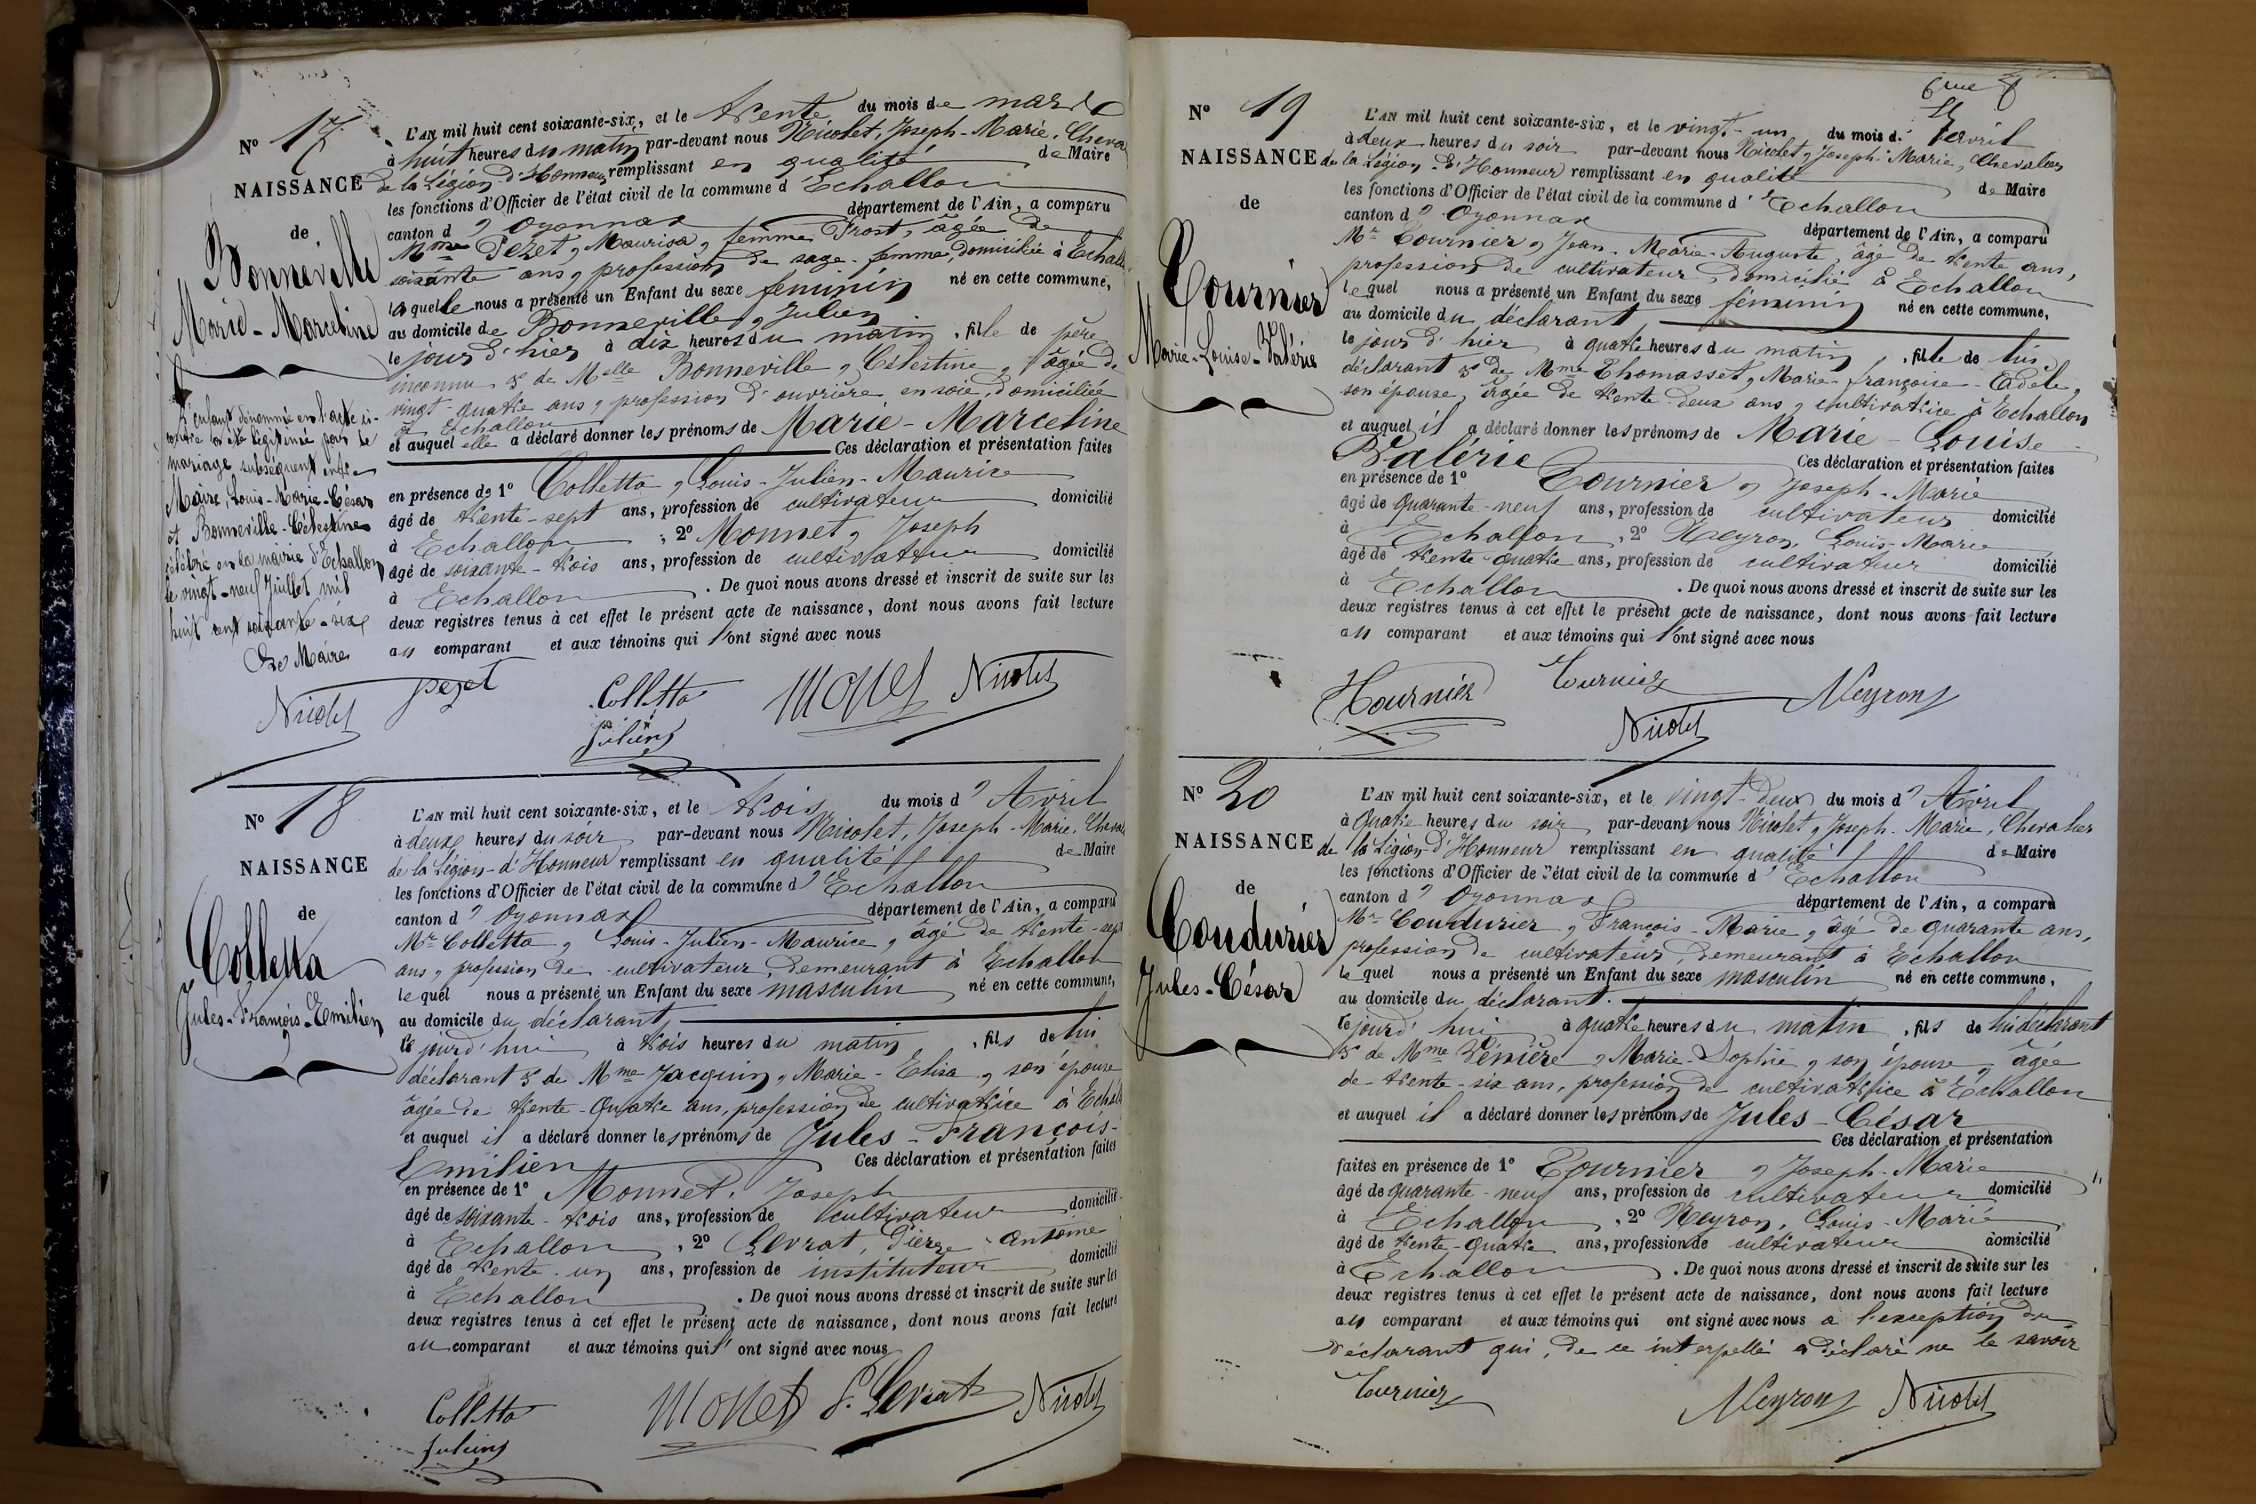 N° 17
NAISSANCE
de
Bonneville
Marie-Marceline
L'enfant dénommé en l'acte ci-
contre a été légitimé par le
mariage subséquent entre
Maire, Louis-Marie-César
et Bonneville-Célestine
célébré en la mairie d'Echallon
le vingt-neuf Juillet mil
huit cent soixante-six
Le Maire
Nicolet
L'AN mil huit cent soixante-six, et le trente du mois de mars
à huit heures du matin par-devant nous Nicolet, Joseph-Marie, Cheva
de la Légion d'Honneur remplissant en qualité de Maire
les fonctions d'Officier de l'état civil de la commune d'Echallon
canton d'Oyonnax département de l'Ain, a comparu
Mme Pezet, Maurisa, femme Prost, âgée de
soixante ans, profession de sage-femme, domiciliée à Echall
laquelle nous a présenté un Enfant du sexe féminin né en cette commune,
au domicile de Bonneville, Julien
le jour d'hier à dix heures du matin, fille de père
inconnu & de Melle Bonneville, Célestine, âgée de
vingt-quatre ans, profession d'ouvrière en soie, domiciliée
à Echallon
et auquel elle a déclaré donner les prénoms de Marie-Marceline
Ces déclaration et présentation faites
en présence de 1° Colletta, Louis-Julien-Maurice
âgé de trente-sept ans, profession de cultivateur domicilié
à Echallon, 2° Monnet, Joseph
âgé de soixante-trois ans, profession de cultivateur domicilié
à Echallon. De quoi nous avons dressé et inscrit de suite sur les
deux registres tenus à cet effet le présent acte de naissance, dont nous avons fait lecture
au comparant et aux témoins qui l'ont signé avec nous
pezet Colletta Julien Monet Nicolet
N° 18
NAISSANCE
de
Colletta
Jules-François-Emilien
L'AN mil huit cent soixante-six, et le trois du mois d'Avril
à deux heures du soir par-devant nous Nicolet, Joseph-Marie, Cheval
de la Légion-d'Honneur remplissant en qualité de Maire
les fonctions d'Officier de l'état civil de la commune d'Echallon
canton d'Oyonnax département de l'Ain, a comparu
Mr Colletta, Louis-Julien-Maurice, âgé de trente-sept
ans, profession de cultivateur, demeurant à Echallon
lequel nous a présenté un Enfant du sexe masculin né en cette commune,
au domicile du déclarant
le jourd'hui à trois heures du matin, fils de lui
déclarant & de Mme Jacquin, Marie-Elisa, son épouse
âgée de trente-quatre ans, profession de cultivatrice à Echall
et auquel il a déclaré donner les prénoms de Jules-François-
Emilien Ces déclaration et présentation faites
en présence de 1° Monnet, Joseph
âgé de soixante-trois ans, profession de cultivateur domicilié
à Echallon, 2° Levrat, Pierre-Antoine
âgé de trente-un ans, profession de instituteur domicilié
à Echallon. De quoi nous avons dressé et inscrit de suite sur les
deux registres tenus à cet effet le présent acte de naissance, dont nous avons fait lecture
au comparant et aux témoins qui l'ont signé avec nous
Colletta Julien Monet P. Levrat Nicolet
6me f
N° 19
NAISSANCE
de
Tournier
Marie-Louise-Valérie
L'AN mil huit cent soixante-six, et le vingt-un du mois d'avril
à deux heures du soir par-devant nous Nicolet, Joseph-Marie, Chevalier
de la Légion-d'Honneur remplissant en qualité de Maire
les fonctions d'Officier de l'état civil de la commune d'Echallon
canton d'Oyonnax département de l'Ain, a comparu
Mr Tournier, Jean-Marie-Auguste, âgé de trente ans,
profession de cultivateur domicilié à Echallon
lequel nous a présenté un Enfant du sexe féminin né en cette commune,
au domicile du déclarant
le jour d'hier à quatre heures du matin, fille de lui
déclarant & de Mme Thomasset, Marie-françoise-Adèle,
son épouse, âgée de trente-deux ans, cultivatrice à Echallon
et auquel il a déclaré donner les prénoms de Marie-Louise-
Valérie Ces déclaration et présentation faites
en présence de 1° Tournier, Joseph-Marie
âgé de quarante-neuf ans, profession de cultivateur domicilié
à Echallon, 2° Neyron, Louis-Marie
âgé de trente-quatre ans, profession de cultivateur domicilié
à Echallon. De quoi nous avons dressé et inscrit de suite sur les
deux registres tenus à cet effet le présent acte de naissance, dont nous avons fait lecture
au comparant et aux témoins qui l'ont signé avec nous
Tournier Tournier Neyron
Nicolet
N° 20
NAISSANCE
de
Coudurier
Jules-César
L'AN mil huit cent soixante-six, et le vingt-deux du mois d'Avril
à quatre heures du soir par-devant nous Nicolet, Joseph-Marie, Chevalier
de la Légion-d'Honneur remplissant en qualité de Maire
les fonctions d'Officier de l'état civil de la commune d'Echallon
canton d'Oyonnax département de l'Ain, a comparu
Mr Coudurier, François-Marie, âgé de quarante ans,
profession de cultivateur, demeurant à Echallon
lequel nous a présenté un Enfant du sexe masculin né en cette commune,
au domicile du déclarant.
le jourd'hui à quatre heures du matin, fils de lui déclarant
& de Mme Pénière, Marie-Sophie, son épouse, âgée
de trente-six ans, profession de cultivatrice à Echallon
et auquel il a déclaré donner les prénoms de Jules-César
Ces déclaration et présentation
faites en présence de 1° Tournier, Joseph-Marie
âgé de quarante-neuf ans, profession de cultivateur domicilié
à Echallon, 2° Neyron, Louis-Marie
âgé de trente-quatre ans, profession de cultivateur domicilié
à Echallon. De quoi nous avons dressé et inscrit de suite sur les
deux registres tenus à cet effet le présent acte de naissance, dont nous avons fait lecture
au comparant et aux témoins qui ont signé avec nous à l'exception du
déclarant qui, de ce interpellé a déclaré ne le savoir
Tournier Neyron Nicolet